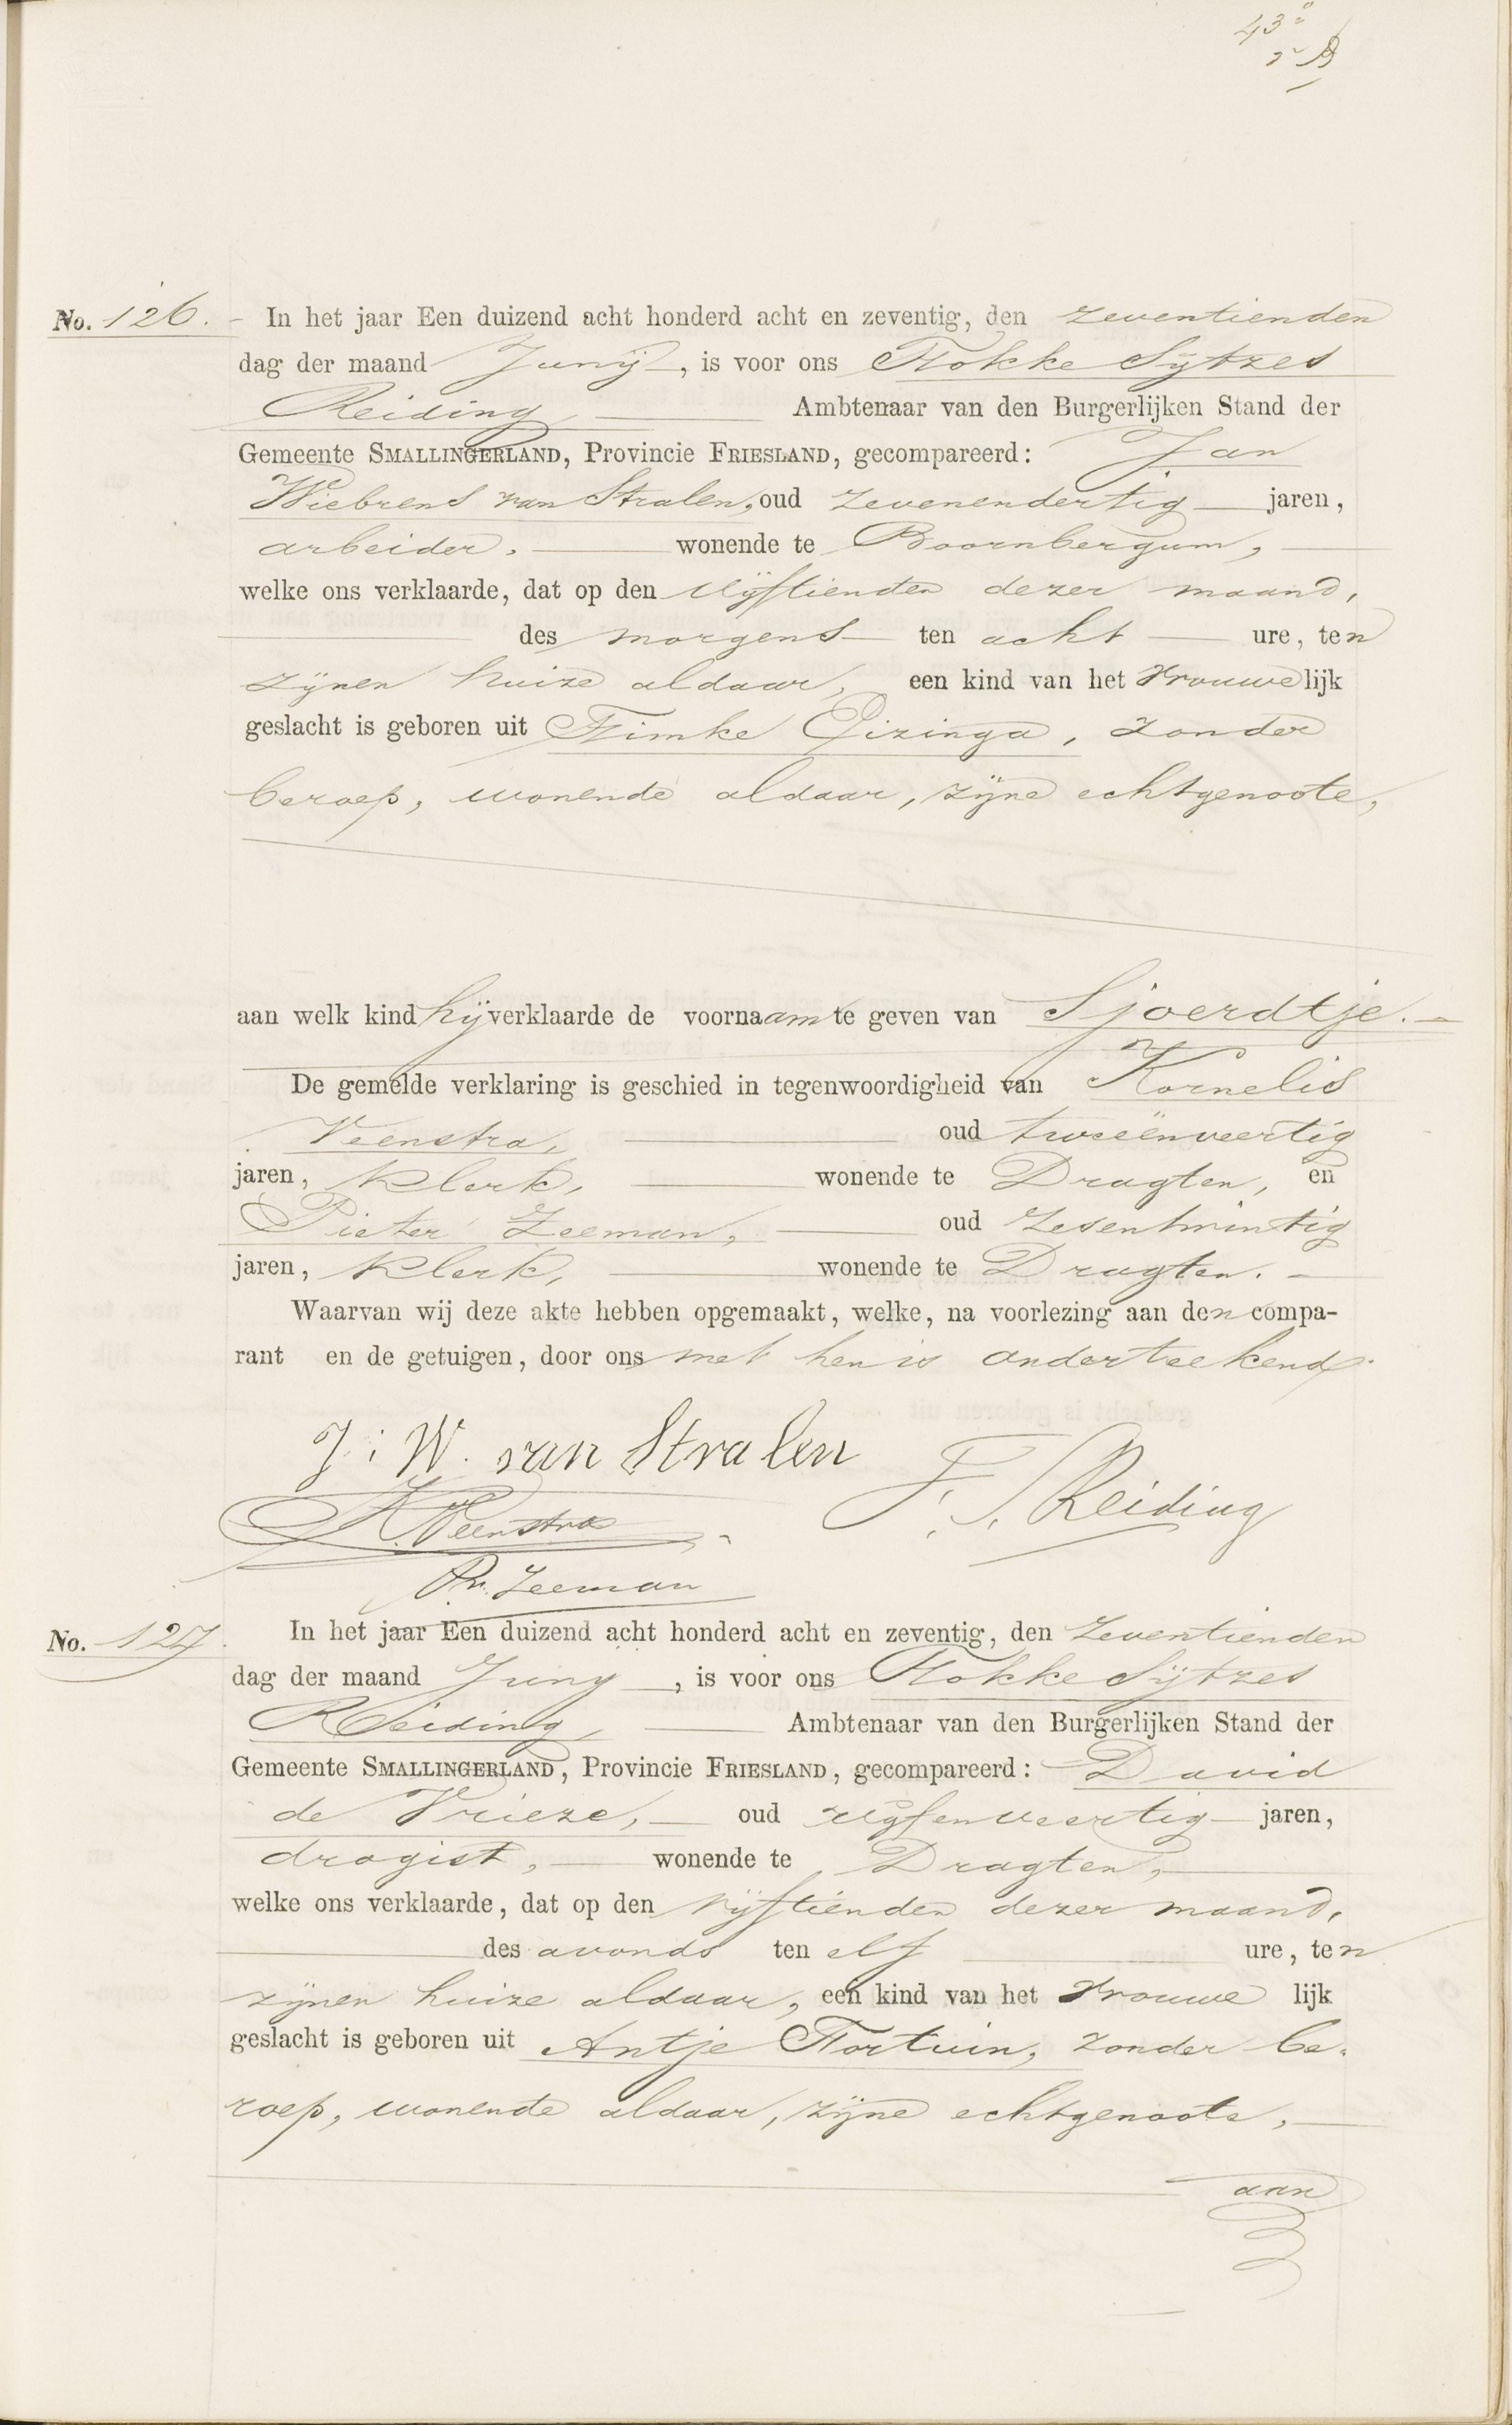 43e
No. 126. In het jaar Een duizend acht honderd acht en zeventig, den zeventienden
dag der maand Junij, is voor ons Fokke Sytzes
Reiding Ambtenaar van den Burgerlijken Stand der
Gemeente SMALLINGERLAND, Provincie FRIESLAND, gecompareerd: Jan
Wiebrens van Stralen, oud zevenendertig jaren,
arbeider, wonende te Boornbergum,
welke ons verklaarde, dat op den vijftienden dezer maand,
des morgens ten acht ure, ten
zijnen huize aldaar, een kind van het vrouwelijk
geslacht is geboren uit Fimke Eizinga, zonder
beroep, wonende aldaar, zijne echtgenoote,
aan welk kind hij verklaarde de voornaam te geven van Sjoerdtje.
De gemelde verklaring is geschied in tegenwoordigheid van Kornelis
Veenstra, oud tweeënveertig
jaren, klerk, wonende te Dragten, en
Pieter Zeeman, oud zesentwintig
jaren, klerk, wonende te Dragten.
Waarvan wij deze akte hebben opgemaakt, welke, na voorlezing aan den compa-
rant en de getuigen, door ons met hen is onderteekend.
J: W. van Stralen
F. S. Reiding
K. Veenstra
Pr. Zeeman
No. 127. In het jaar Een duizend acht honderd acht en zeventig, den zeventienden
dag der maand Juny, is voor ons Fokke Sijtzes
Reiding, Ambtenaar van den Burgerlijken Stand der
Gemeente SMALLINGERLAND, Provincie FRIESLAND, gecompareerd: David
de Vrieze, oud vijfenveertig jaren,
drogist, wonende te Dragten,
welke ons verklaarde, dat op den vijftienden dezer maand,
des avonds ten elf ure, ten
zijnen huize aldaar, een kind van het vrouwe lijk
geslacht is geboren uit Antje Fortuin, zonder be-
roep, wonende aldaar, zijne echtgenoote,
aan